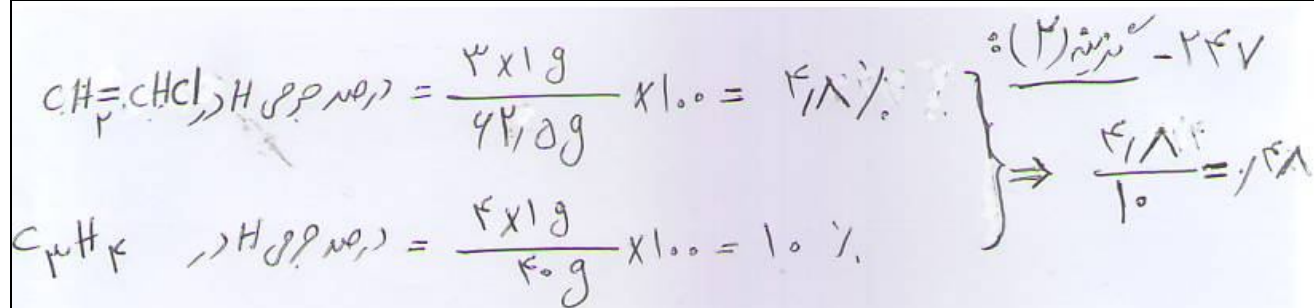 ۲۴۷- گزینه (۲):
درصد جرمی H در CH₂=CHCl = (۳×۱g / ۶۲٫۵g) ×۱۰۰ = ۴٫۸٪
درصد جرمی H در C₃H₄ = (۴×۱g / ۴۰g) ×۱۰۰ = ۱۰٪
⇒ ۴٫۸ / ۱۰ = ٫۴۸